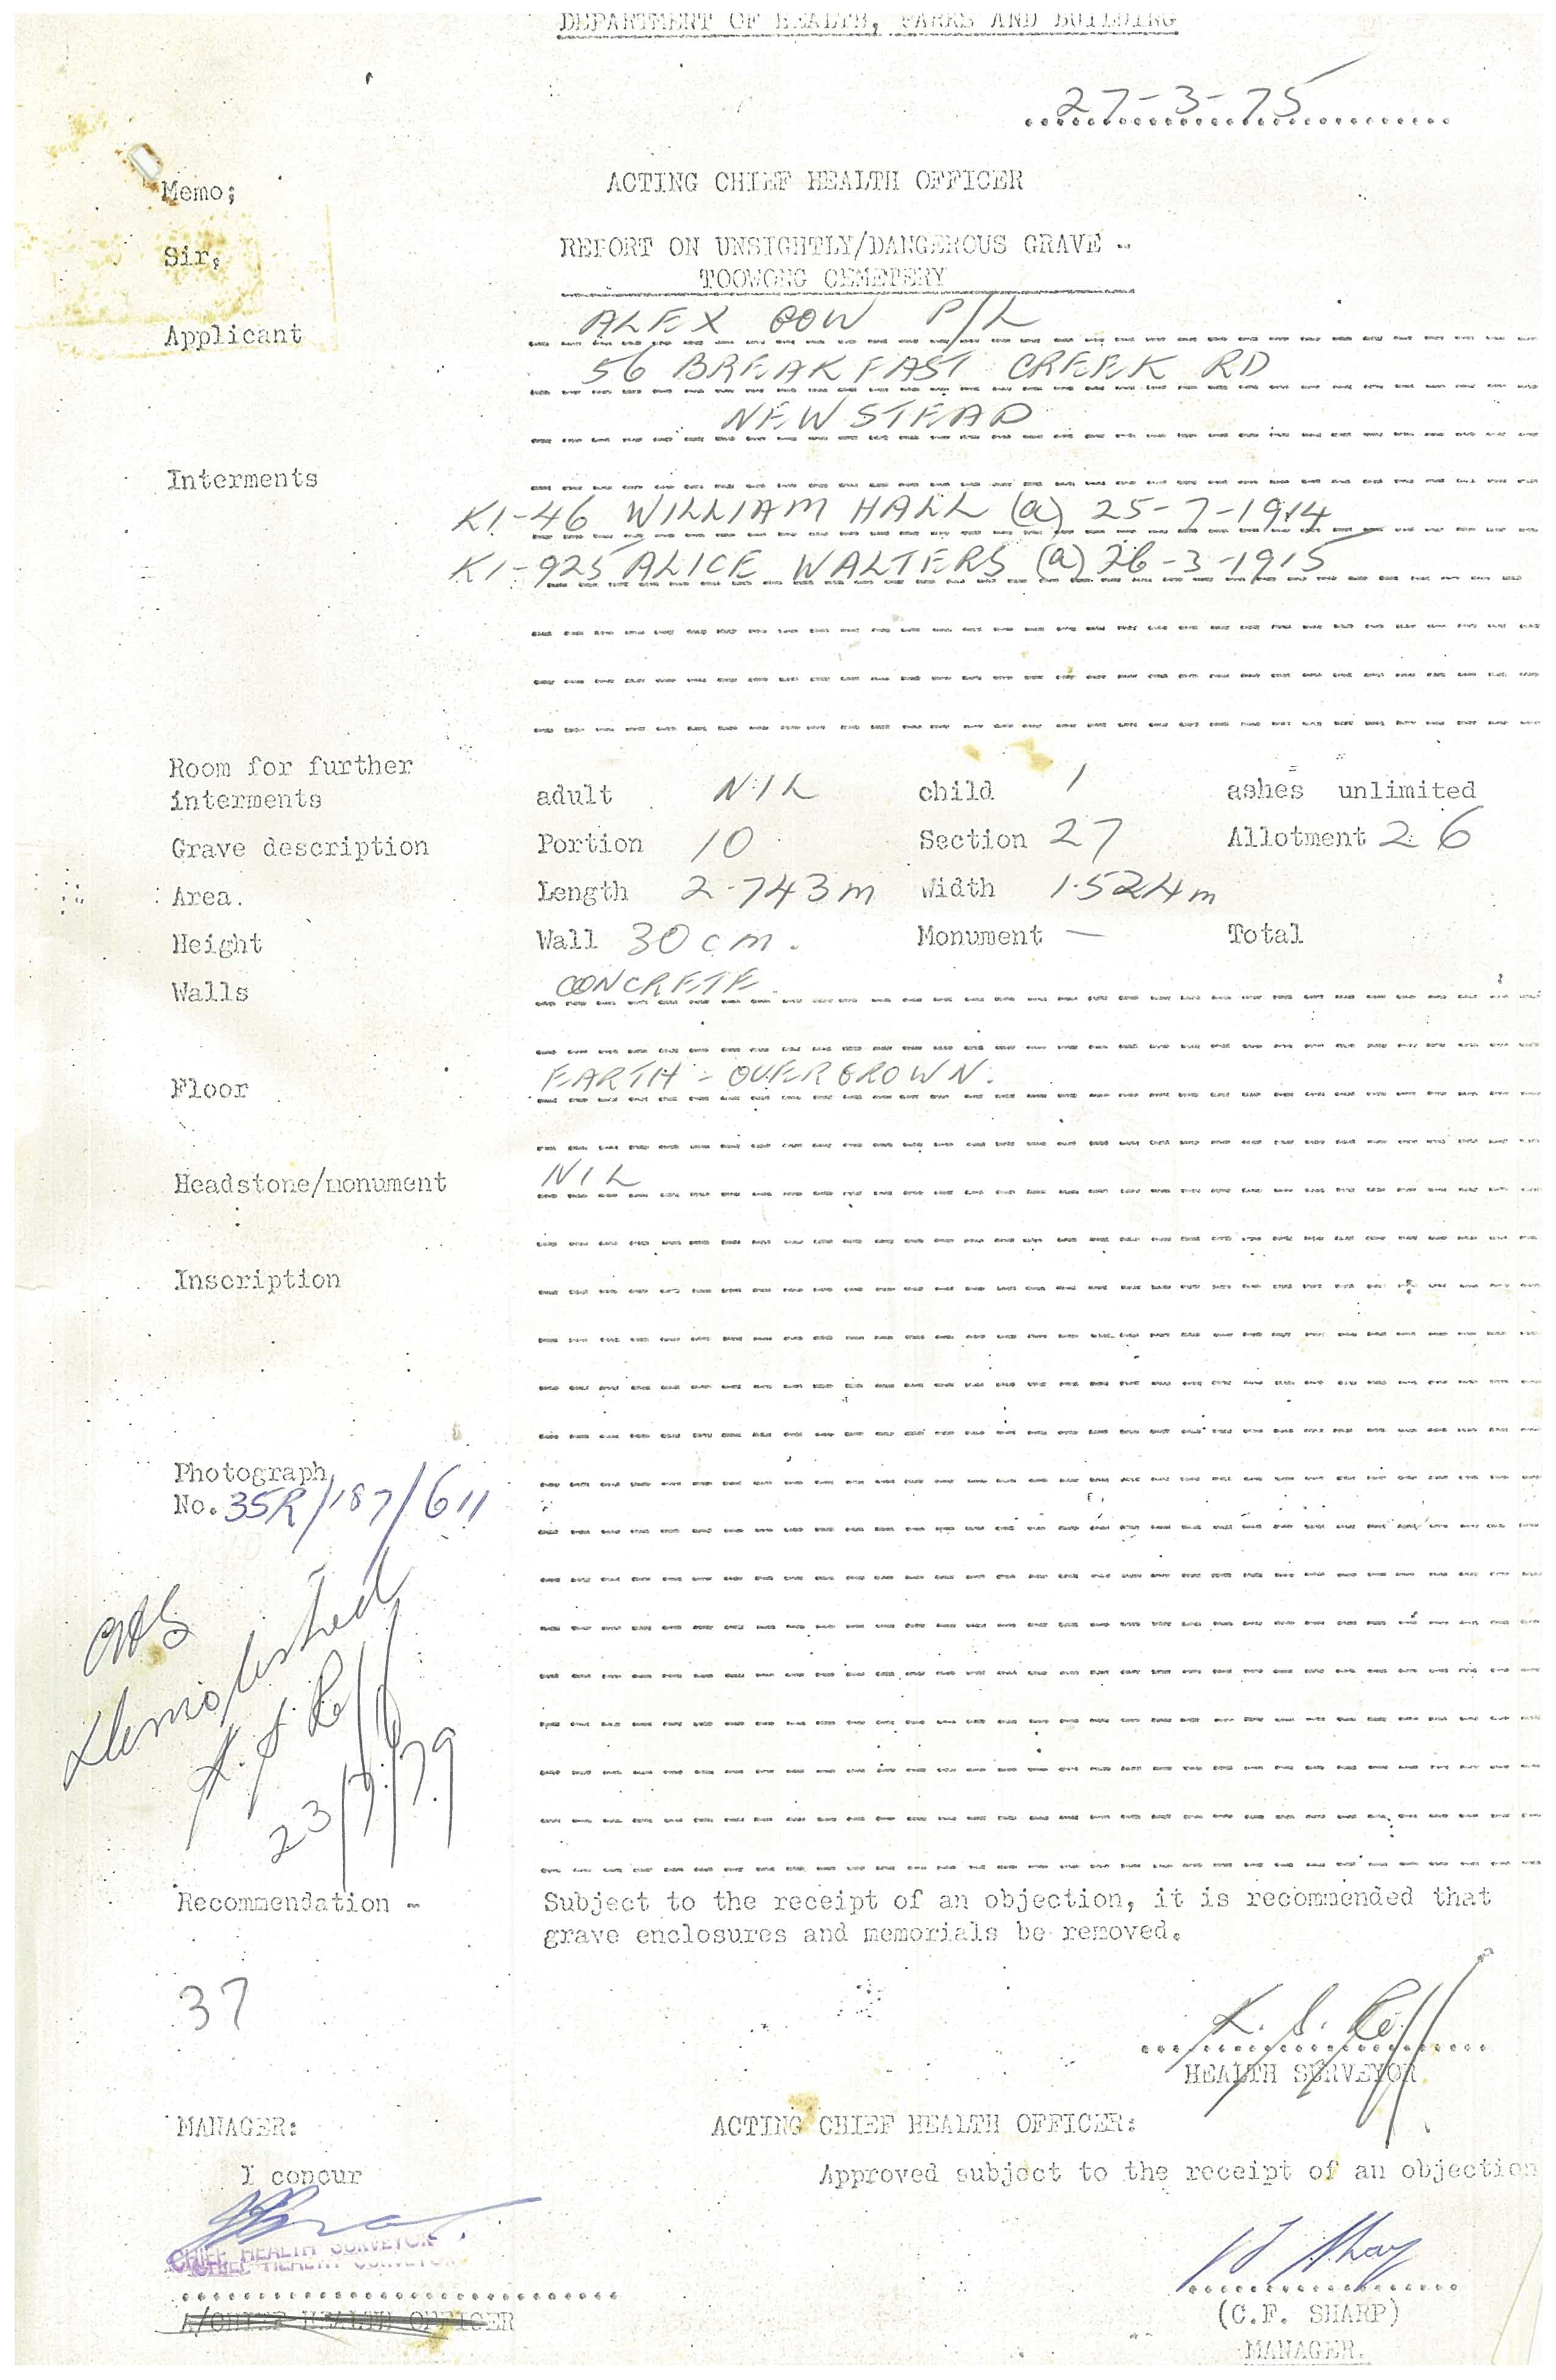 DEPARTMENT OF HEALTH, PARKS AND BUILDING
27-3-75
Memo; ACTING CHIEF HEALTH OFFICER
Sir, REPORT ON UNSIGHTLY/DANGEROUS GRAVE -
TOOWONG CEMETERY
Applicant ALEX GOW P/L
56 BREAKFAST CREEK RD
NEWSTEAD
Interments
K1-46 WILLIAM HALL (a) 25-7-1914
K1-925 ALICE WALTERS (a) 26-3-1915
Room for further
interments adult NIL child 1 ashes unlimited
Grave description Portion 10 Section 27 Allotment 26
Area. Length 2.743m Width 1.524m
Height Wall 30cm. Monument — Total
Walls CONCRETE.
Floor EARTH - OVERGROWN.
Headstone/monument NIL
Inscription
Photograph
No. 35R/187/611
Demolished
23/7/79
Recommendation - Subject to the receipt of an objection, it is recommended that
grave enclosures and memorials be removed.
37
HEALTH SURVEYOR
MANAGER: ACTING CHIEF HEALTH OFFICER:
I concur Approved subject to the receipt of an objection
CHIEF HEALTH SURVEYOR
CHIEF HEALTH SURVEYOR
A/CHIEF HEALTH OFFICER
(C.F. SHARP)
MANAGER.